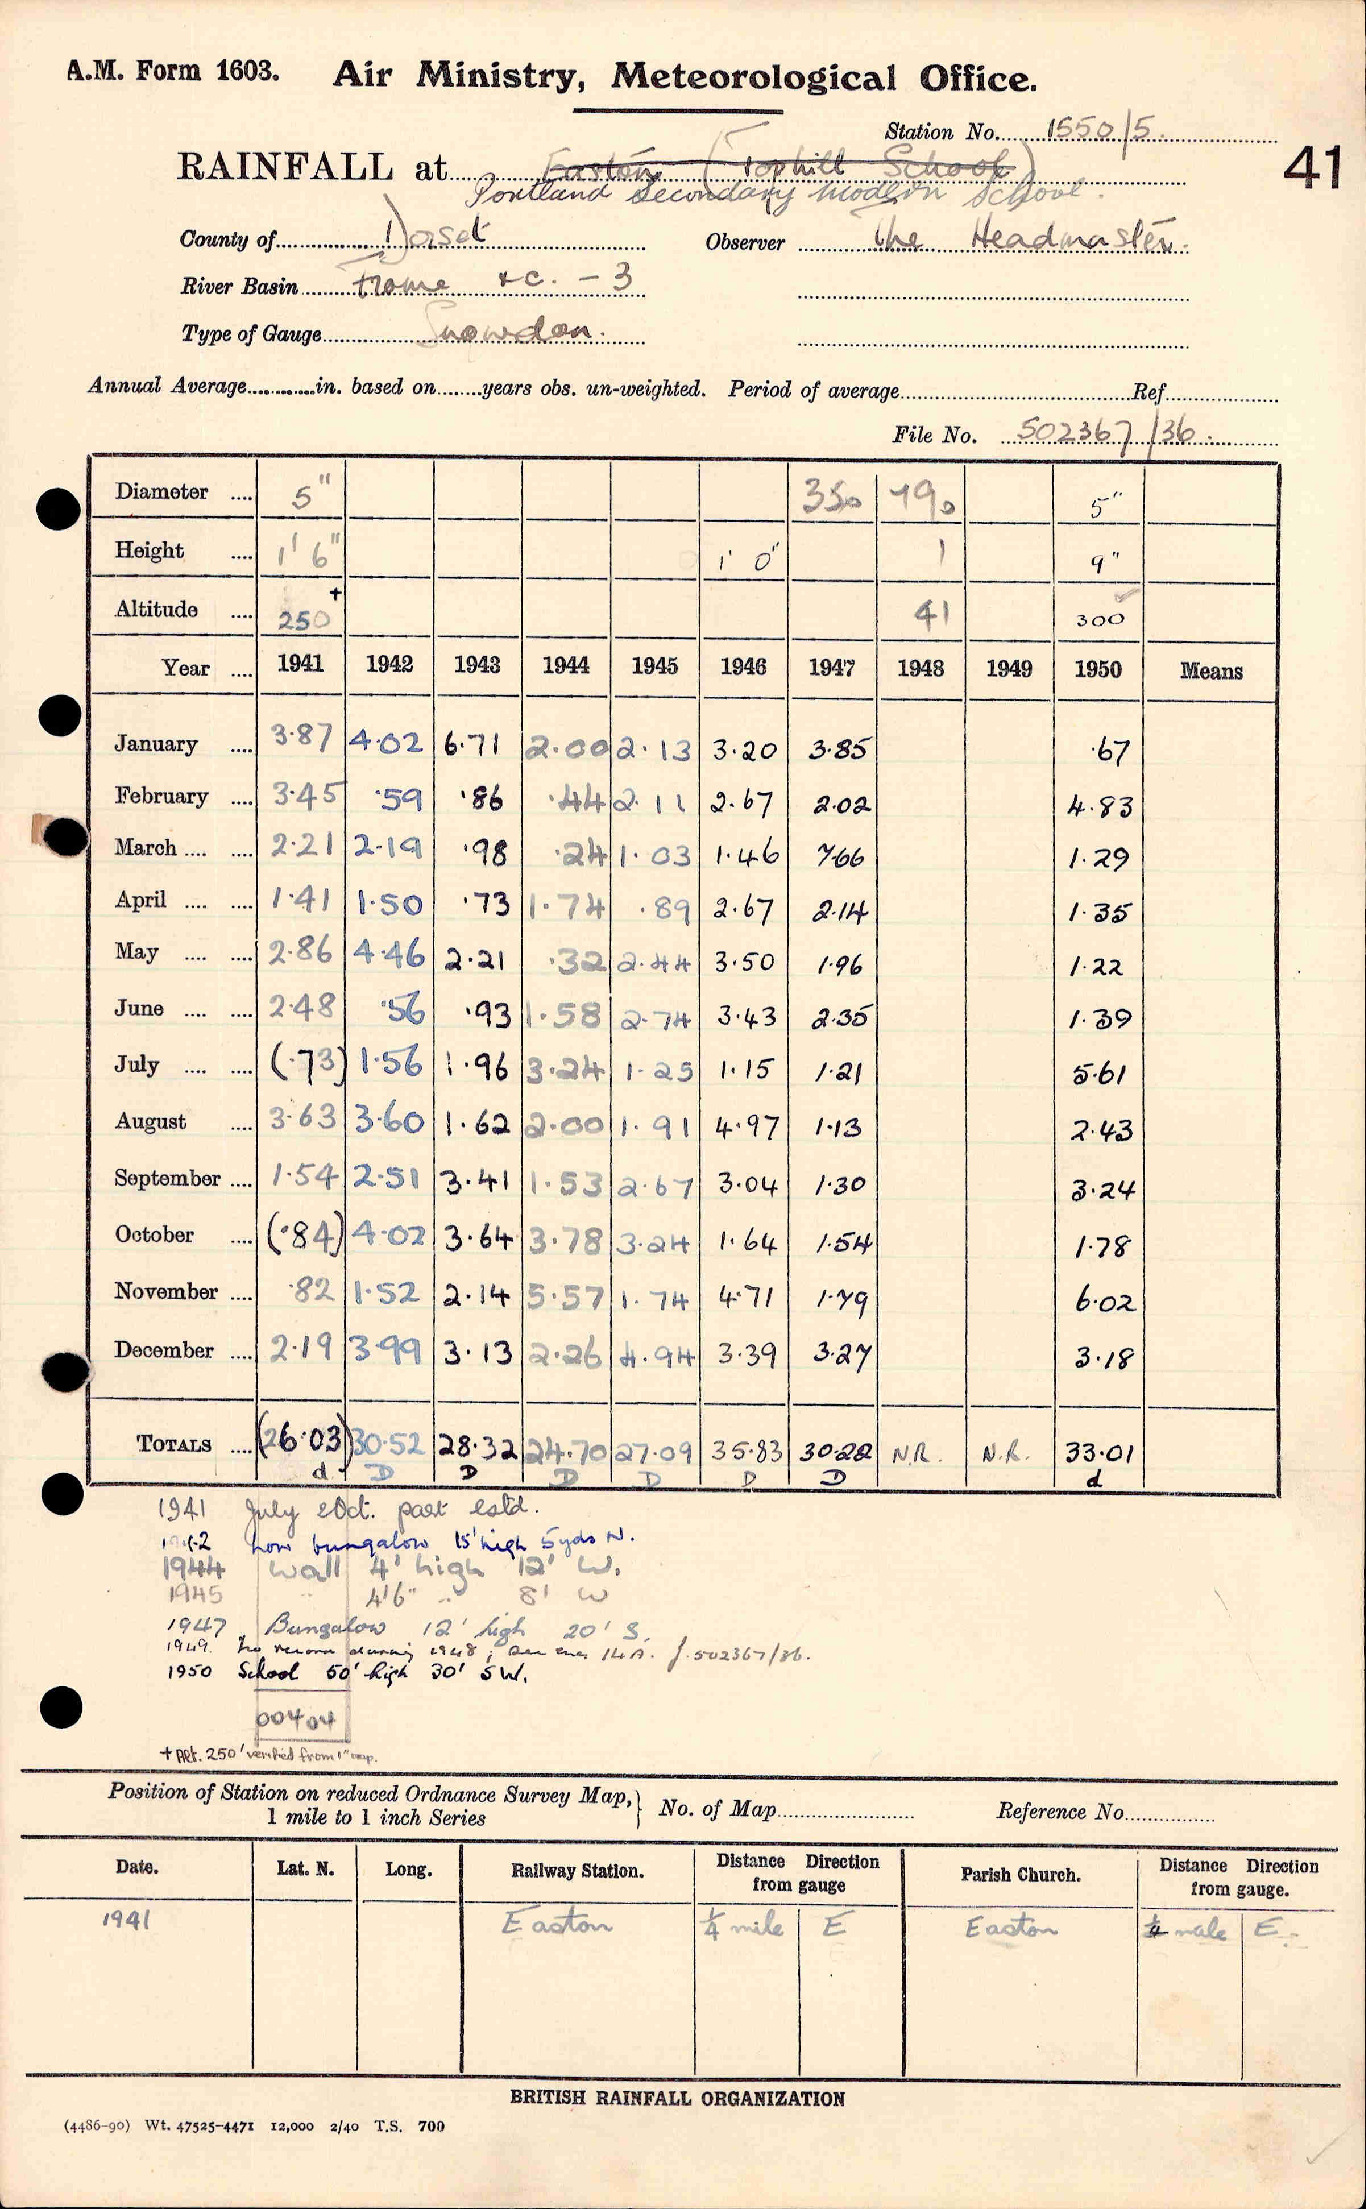 A.M. Form 1603. Air Ministry, Meteorological Office.
Station No. 1550/5.
41
RAINFALL at Easton (Tophill School)
Portland Secondary Modern School.
County of Dorset Observer The Headmaster.
River Basin Frome &c. - 3
Type of Gauge Snowdon.
Annual Average............in. based on........years obs. un-weighted. Period of average........Ref........
File No. 502367/36.
Diameter .... 5" 350 790 5"
Height .... 1' 6" 1' 0" 1 9"
Altitude .... 250+ 41 300
Year .... 1941 1942 1943 1944 1945 1946 1947 1948 1949 1950 Means
January .... 3.87 4.02 6.71 2.00 2.13 3.20 3.85 .67
February .... 3.45 .59 .86 .44 2.11 2.67 2.02 4.83
March .... .... 2.21 2.19 .98 .24 1.03 1.46 7.66 1.29
April .... .... 1.41 1.50 .73 1.74 .89 2.67 2.14 1.35
May .... .... 2.86 4.46 2.21 .32 2.44 3.50 1.96 1.22
June .... .... 2.48 .56 .93 1.58 2.74 3.43 2.35 1.39
July .... .... (.73) 1.56 1.96 3.24 1.25 1.15 1.21 5.61
August .... 3.63 3.60 1.62 2.00 1.91 4.97 1.13 2.43
September .... 1.54 2.51 3.41 1.53 2.67 3.04 1.30 3.24
October .... (.84) 4.02 3.64 3.78 3.24 1.64 1.54 1.78
November .... .82 1.52 2.14 5.57 1.74 4.71 1.79 6.02
December .... 2.19 3.99 3.13 2.26 4.94 3.39 3.27 3.18
TOTALS .... (26.03) 30.52 28.32 24.70 27.09 35.83 30.22 N.R. N.R. 33.01
d D D D D D D d
1941 July & Oct. part estd.
1942 bungalow 15' high 5 yds N.
1944 Wall 4' high 12' W.
1945 " 4'6" " 8' W
1947 Bungalow 12' high 20' S.
1949. No record during 1948; 14A. f.502367/36.
1950 School 50' high 30' SW.
00404
+ Alt. 250' verified from 1" map.
Position of Station on reduced Ordnance Survey Map, 1 mile to 1 inch Series } No. of Map........ Reference No........
Date. Lat. N. Long. Railway Station. Distance Direction from gauge Parish Church. Distance Direction from gauge.
1941 Easton ¼ mile E Easton ¼ mile E.
BRITISH RAINFALL ORGANIZATION
(4486-90) Wt. 47525-4471 12,000 2/40 T.S. 700